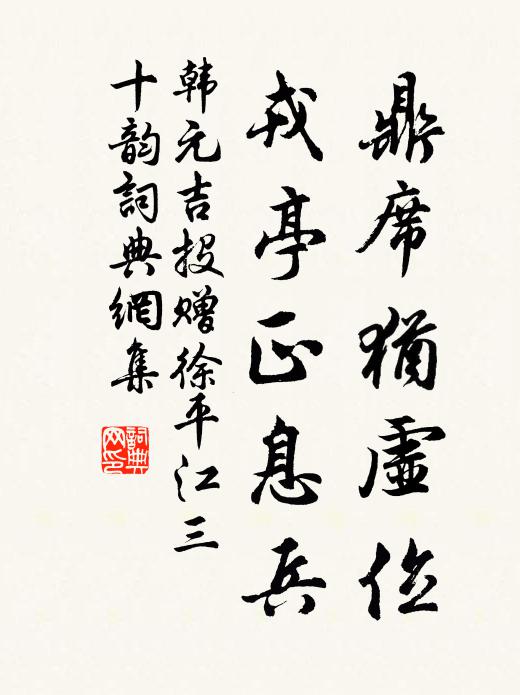 鼎席犹虚位
戎亭正息兵
韩元吉投赠徐平江三
十韵詞典網集
詞典
网印